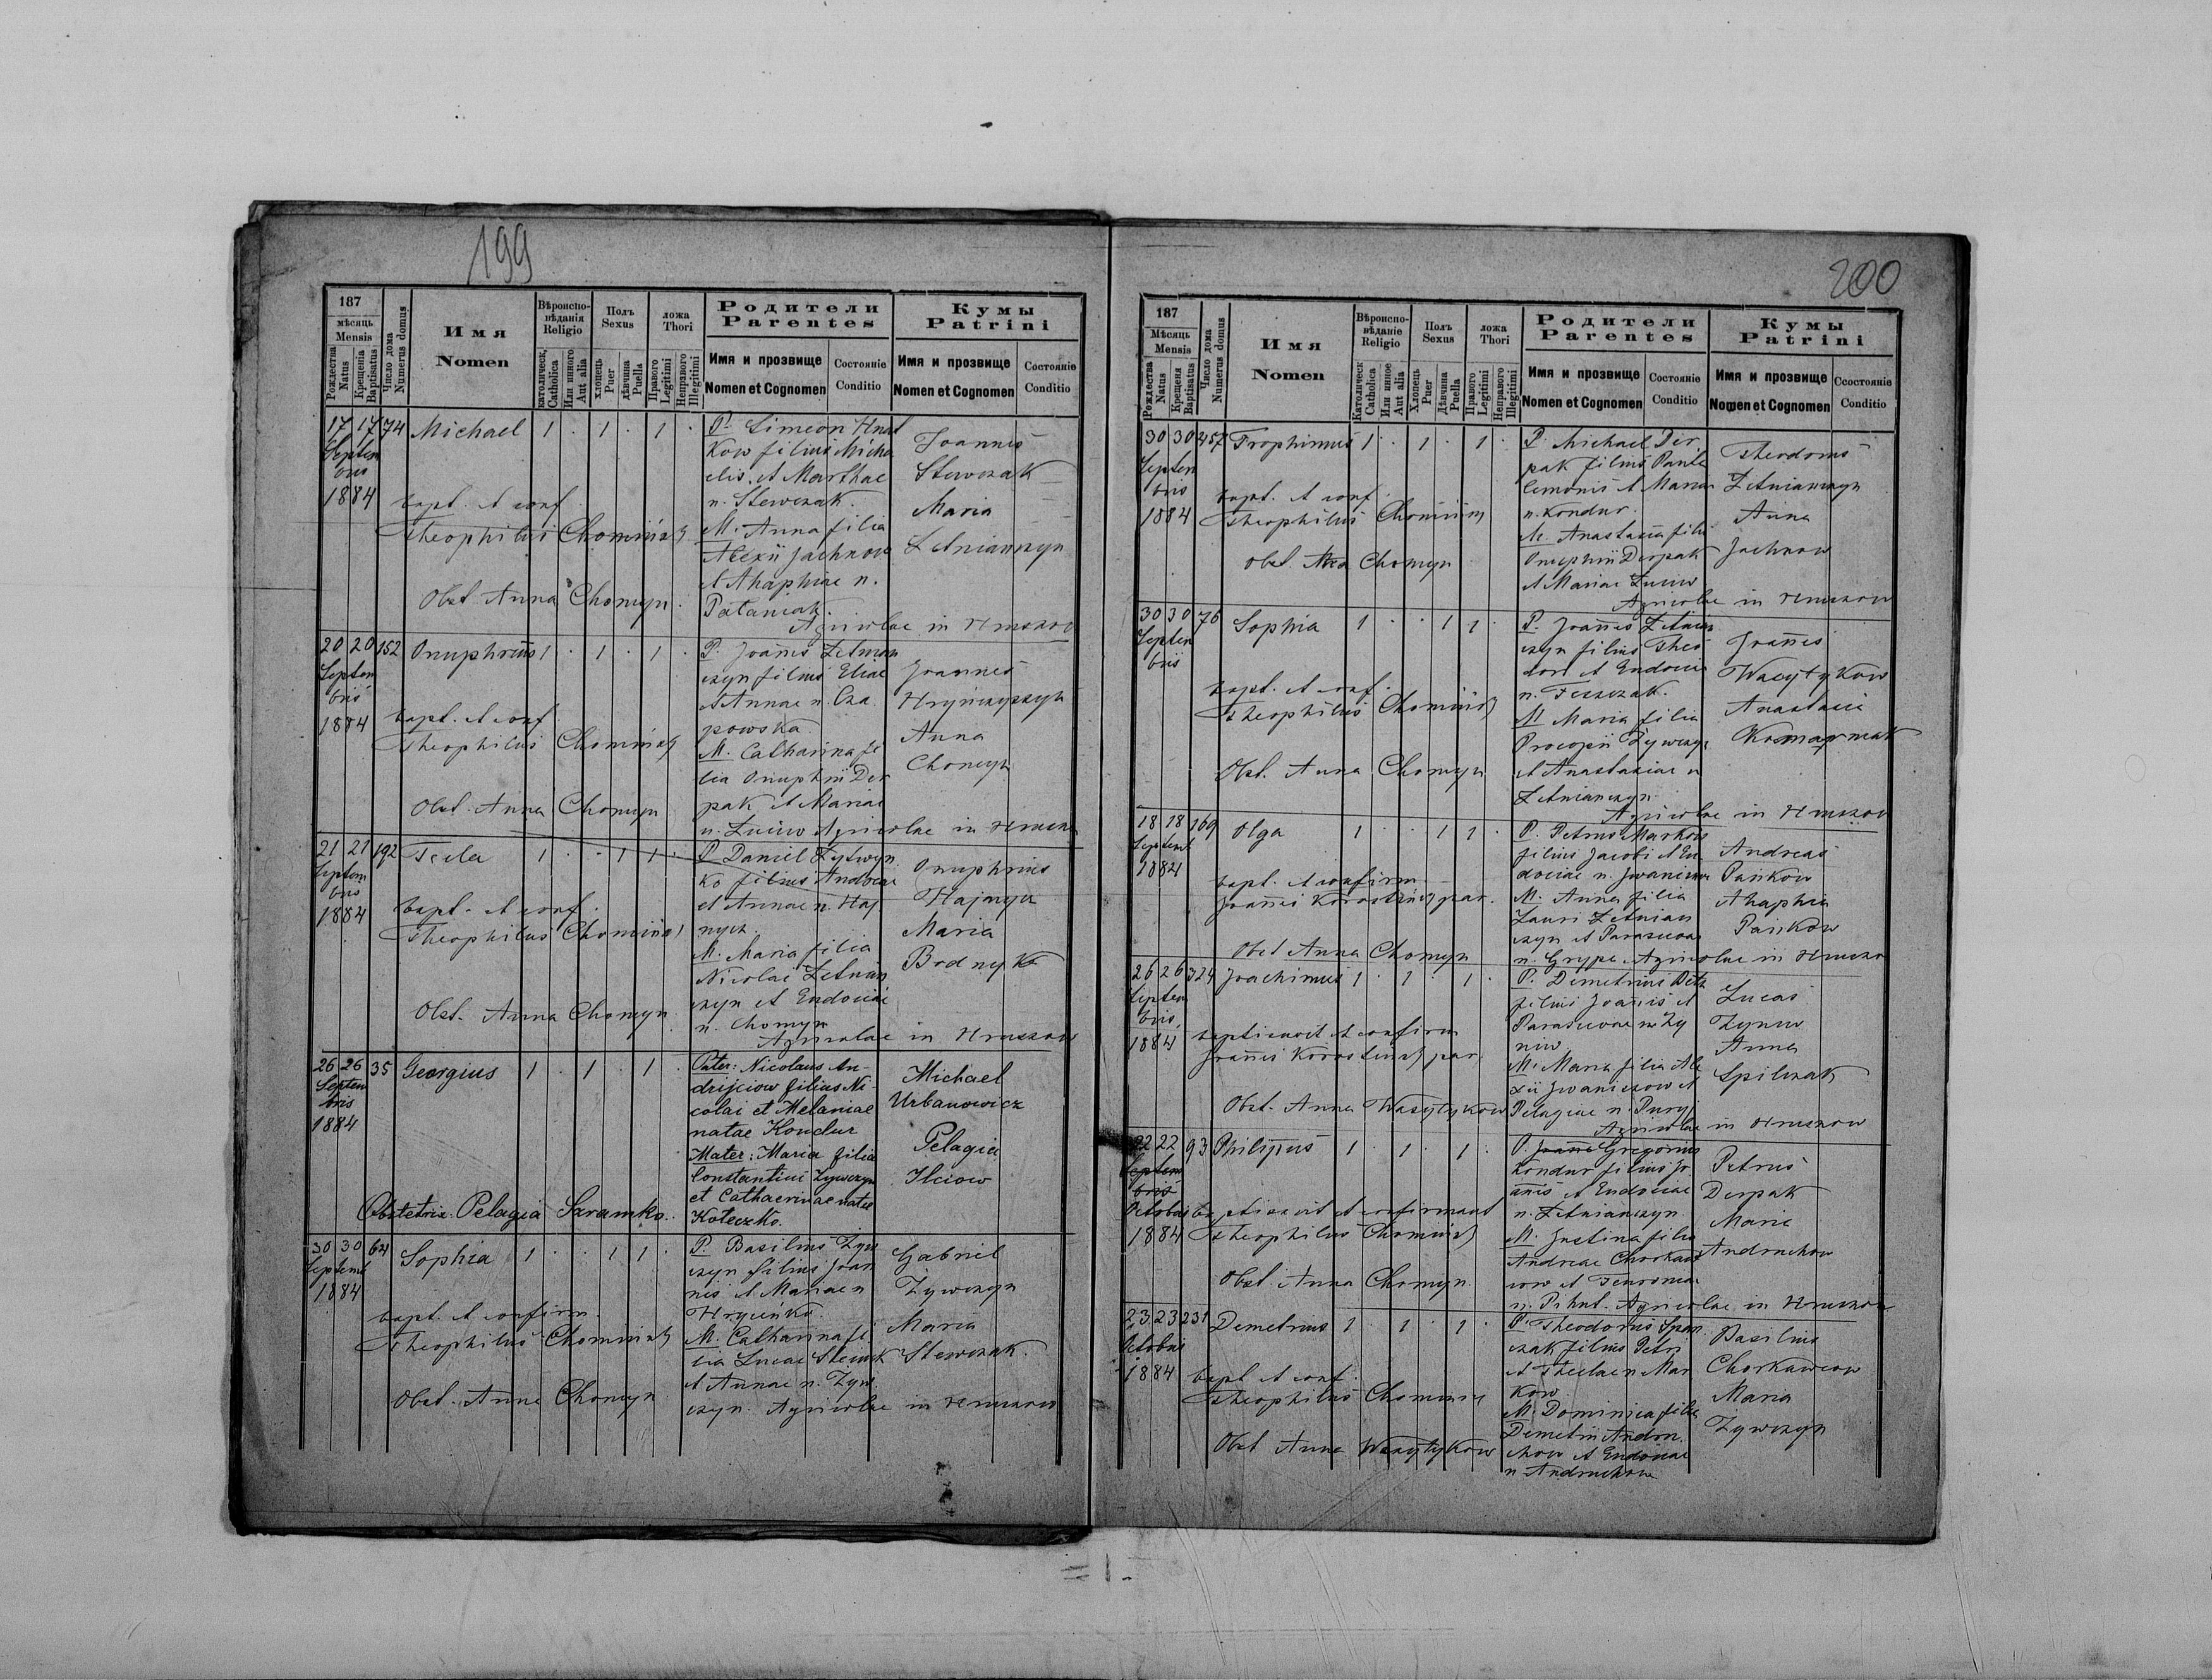 199
187
мѣсяць
Mensis
Рождества Natus
Крещенія Baptisatus
Число дома Numerus domus
Имя
Nomen
Вѣроиспо-
вѣданія
Religio
католическ. Catholica
Или инного Aut alia
Полъ
Sexus
хлопець Puer
дѣвчина Puella
ложа
Thori
Правого Legitimi
Неправого Illegitimi
Родители
Parentes
Имя и прозвище
Nomen et Cognomen
Состояніе
Conditio
Кумы
Patrini
Имя и прозвище
Nomen et Cognomen
Состояніе
Conditio
17 17 74 Michael 1 . 1 . 1 .
Septem
bris
1884
bapt. et conf.
Theophilus Chominski
Obst. Anna Chomyn
P. Simeon Hnat
kow filius Micha
elis et Marthae
n. Stewczak.
M. Anna filia
Alexii Jachnow
et Ahaphiae n.
Pataniak.
Agricolae in Hruszow
Joannes
Stewczak
Maria
Letnianczyn
20 20 152 Onuphrius 1 . 1 . 1 .
Septem
bris
1884
bapt. et conf
Theophilus Chominski
Obst. Anna Chomyn
P. Joannes Letnian
czyn filius Eliae
et Annae n. Cza
powska
M. Catharina fi
lia Onuphrii Der
pak et Mariae
n. Luciw Agricolae in Hruszow
Joannes
Hrynczyszyn
Anna
Chomyn
21 21 192 Tecla 1 . . 1 1 .
Septem
bris
1884
bapt. et conf.
Theophilus Chominski
Obst. Anna Chomyn
P. Daniel Lytwyn
ko filius Andreae
et Annae n. Haj
nycz.
M. Maria filia
Nicolai Letnian
czyn et Eudociae
n. Chomyn
Agricolae in Hruszow
Onuphrius
Hajnycz
Maria
Brdnyk
26 26 35 Georgius 1 . 1 . 1 .
Septem
bris
1884
Obstetrix: Pelagia Szramko.
Pater: Nicolaus An-
drijciow filius Ni-
colai et Melaniae
natae Kondur
Mater: Maria filia
Constantini Zywczyn
et Cathaerinae natae
Koteczko.
Michael
Urbanowicz
Pelagia
Ilciow
30 30 64 Sophia 1 . . 1 1 .
Septemb
1884
bapt. et confirm.
Theophilus Chominski
Obst. Anna Chomyn
P. Basilius Zyw
czyn filius Joan
nis et Mariae n
Hrycinko.
M. Catharina fi
lia Lucae Stewczak
et Annae n. Zyw
czyn. Agricolae in Hruszow
Gabriel
Zywczyn
Maria
Stewczak.
200
187
Мѣсяць
Mensis
Рождества Natus
Крещеня Baptisatus
Число дома Numerus domus
Имя
Nomen
Вѣроиспо-
вѣданіе
Religio
Католическ Catholica
Или инное Aut alia
Полъ
Sexus
Хлопець Puer
Дѣвчина Puella
ложа
Thori
Правого Legitimi
Неправого Illegitimi
Родители
Parentes
Имя и прозвище
Nomen et Cognomen
Состояніе
Conditio
Кумы
Patrini
Имя и прозвище
Nomen et Cognomen
Ссостояніе
Conditio
30 30 257 Trophimus 1 . 1 . 1 .
Septem
bris
1884
bapt. et conf.
Theophilus Chominski
Obst. Anna Chomyn
P. Michael Der
pak filius Pante
lemonis et Mariae
n. Kondur.
M. Anastasia filia
Onuphrii Derpak
et Mariae Luciw
Agricolae in Hruszow
Theodorus
Letnianczyn
Anna
Jachnow
30 30 76 Sophia 1 . . 1 1 .
Septem
bris
bapt. et conf.
Theophilus Chominski
Obst. Anna Chomyn
P. Joannes Letnian
czyn filius Theo
dori et Eudociae
n. Feszczak.
M. Maria filia
Procopii Zywczyn
et Anastasiae n
Letnianczyn
Agricolae in Hruszow
Joannes
Wasylykow
Anastasia
Komarniak
18 18 169 Olga 1 . . 1 1 .
Septemb
1884
bapt. et confirm
Joannes Korostenski par.
Obst Anna Chomyn
P. Petrus Markow
filius Jacobi et Eu
dociae n. Iwaniczow
M. Anna filia
Lauri Letnian
czyn et Parascevae
n. Grype. Agricolae in Hruszow
Andreas
Pankow
Ahaphia
Pankow
26 26 324 Joachimus 1 . 1 . 1 .
Septem
bris
1884
baptisavit et confirm
Joannes Korostenski par.
Obst. Anna Wasylykow
P. Demetrius Petz
filius Joannis et
Parascevae n. Zy
niw
M. Maria filia Ale
xii Iwaniczow et
Pelagiae n. Puryj
Agricolae in Hruszow
Lucas
Zyniw
Anna
Spilczak
22 22 93 Philippus 1 . 1 . 1 .
Septem
bris
Octobris
1884
baptisavit et confirmavit
Theophilus Chominski
Obst. Anna Chomyn.
P. Joannes Gregorius
Kondur filius Jo
annis et Eudociae
n. Letnianczyn
M. Justina filia
Andreae Chorkaw
cow et Feurosniae
n. Pihut. Agricolae in Hruszow
Petrus
Derpak
Maria
Andruchow
23 23 231 Demetrius 1 . 1 . 1 .
Octobris
1884
bapt et conf.
Theophilus Chominski
Obst Anna Wasylykow
P. Theodorus Span
czak filius Petri
et Theclae n Mar
kow
M. Dominica filia
Demetrii Andru
chow et Eudociae
n Andruchow
Basilius
Chorkawcow
Maria
Zywczyn